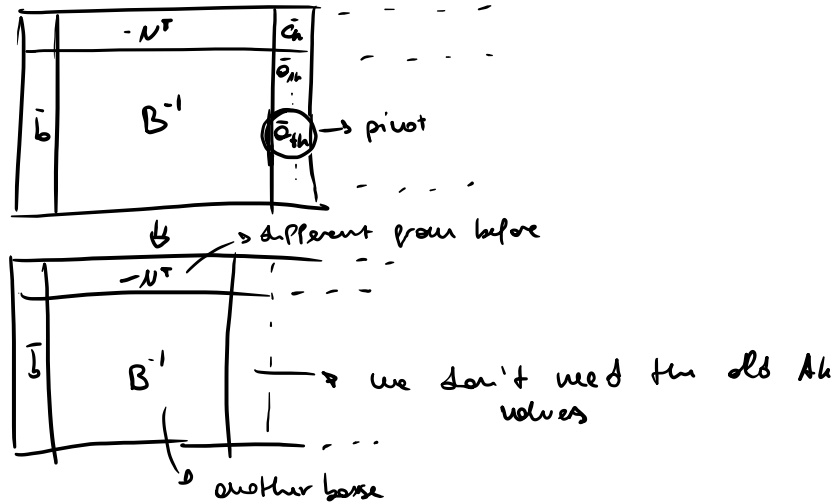 - Nᵀ c̄ₕ
ā₁ₕ
b̄ B⁻¹ āₜₕ → pivot
different from before
- Nᵀ
b̄ B⁻¹ we don't need the old Ah
values
another base